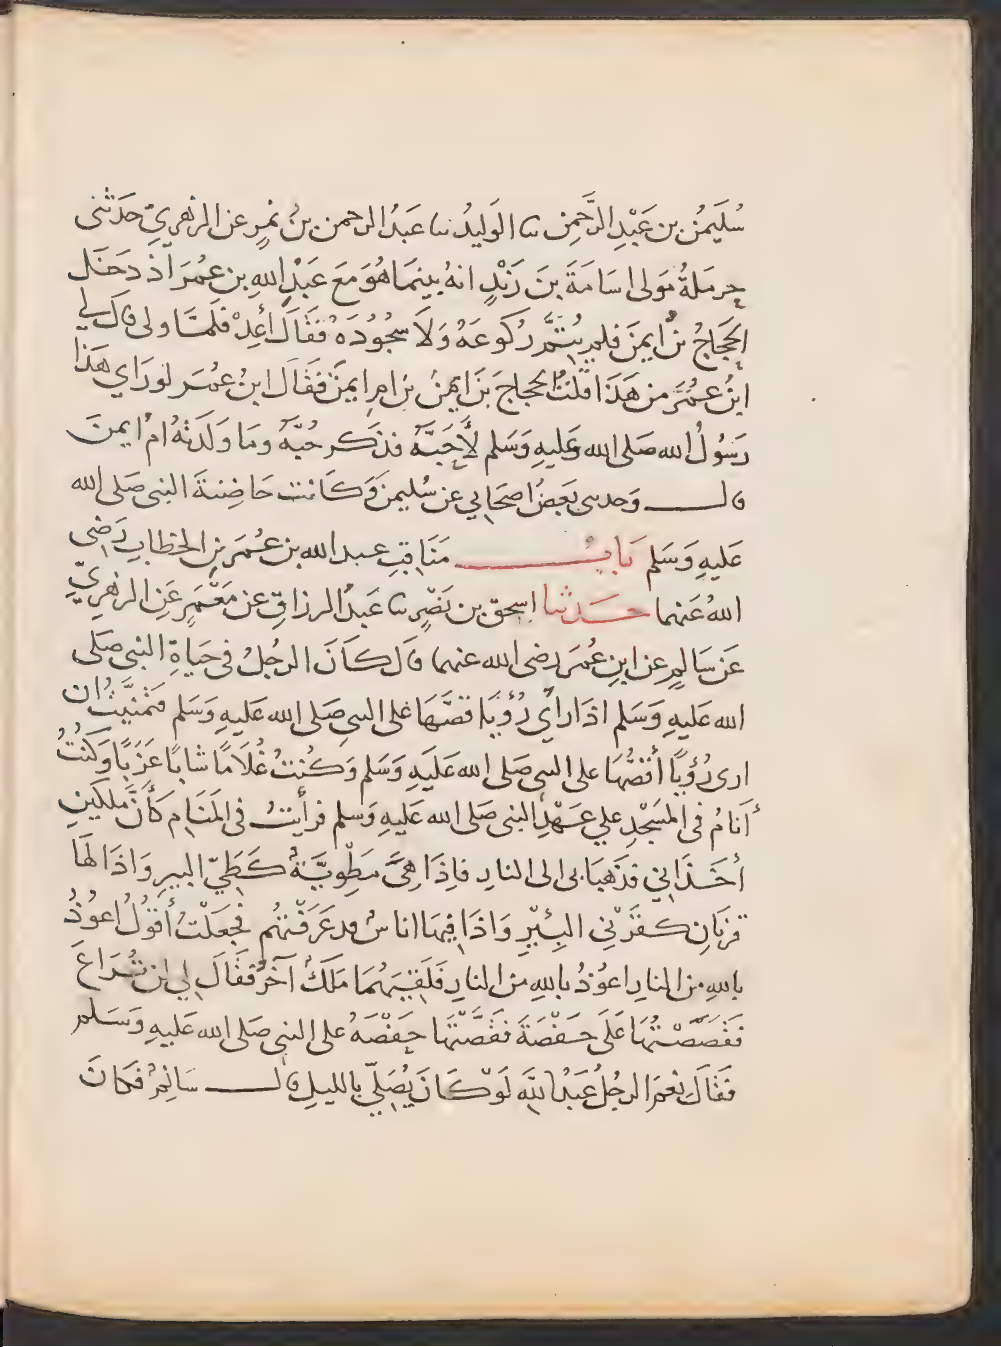 سُلَيمٰنُ بن عَبْدِ الرَّحمِن نا الوَلِيدُ نا عَبدُ الرحمن بنُ نَمِرٍ عن الزهريِّ حَدثنى
حرمَلةُ مَولى اسَامَةَ بنَ زَيْدٍ انهُ بينَمَا هُوَ مَعَ عَبْدِ اللهِ بن عُمَرَ اذْ دَخَل
الحجَاجُ بنُ ايمنَ فلم يُتمَّ رُكُوعَهُ وَلَا سجُودَهُ فقَالَ أَعِدْ فَلَمَّا ولى قَالَ لِي
ابنُ عمُرَ من هَذَا قُلتُ الحجاج بنَ ايمنَ بن امِ ايمنَ فقَالَ ابنُ عُمَر لو رَاي هَذَا
رَسُولُ الله صَلى الله عَليهِ وَسَلم لأَحَبَّهُ فذَكر حُبَّهُ وما وَلدَتهُ امُ ايمنَ
قال وَحدثنى بَعضُ اصحَابي عن سُليمنَ وَكَانت حَاضِنةَ النبى صَلى الله
عَليهِ وَسَلم بَابُ مَنَاقِبِ عبد الله بن عُمَرَ بنِ الخطابِ رَضِى
اللهُ عَنهما حَدثنا اسحقُ بن نَصْرٍ نا عَبدُ الرزاقِ عن مَعْمَرٍ عَنِ الزهريِّ
عَن سَالمٍ عن ابنِ عُمَرَ رضى الله عنهما قال كَانَ الرجُلُ في حَيَاةِ النبى صَلى
الله عَليهِ وَسَلم اذا رَأي رُؤيَا قصَّهَا على النبىِ صَلى الله عَليهِ وَسَلم فتمنَّيتُ ان
ارى رُؤيًا أقُصُّهَا على النبى صَلى الله عَلَيهِ وَسَلم وَكُنتُ غُلَامًا شابًا عَزَبًا وَكُنْتُ
أنَامُ فى المسْجِدِ علي عَهْدِ النبى صَلى الله عَليهِ وَسَلم فرأيتُ فى المَنَامِ كَأَنَّ ملكَينِ
أخَذَانِي فذَهبَا بى الى النارِ فاِذَا هِىَ مَطْوِيَّةٌ كَطَيِّ البيرِ وَاذَا لهَا
قرنَانِ كقَرنَي البِئْرِ وَاذَا فيهَا اناسٌ قد عَرَفْتهُم فجعَلْتُ أقُولُ اعوُذُ
بالله من النارِ اعوُذُ باللهِ من النارِ فَلَقِيَهُمَا مَلَكٌ آخَرُ فقَالَ لِي لن تُرَاعَ
فقَصَصْتُهَا عَلَى حَفْصَةَ فقَصَّتْهَا حَفْصَهُ على النبى صَلى الله عَليهِ وَسَلم
فقَالَ نِعمَ الرجُلُ عَبْدُ اللَّهِ لَوْ كَانَ يُصَلِّي بالليلِ قال سَالمٌ فكانَ